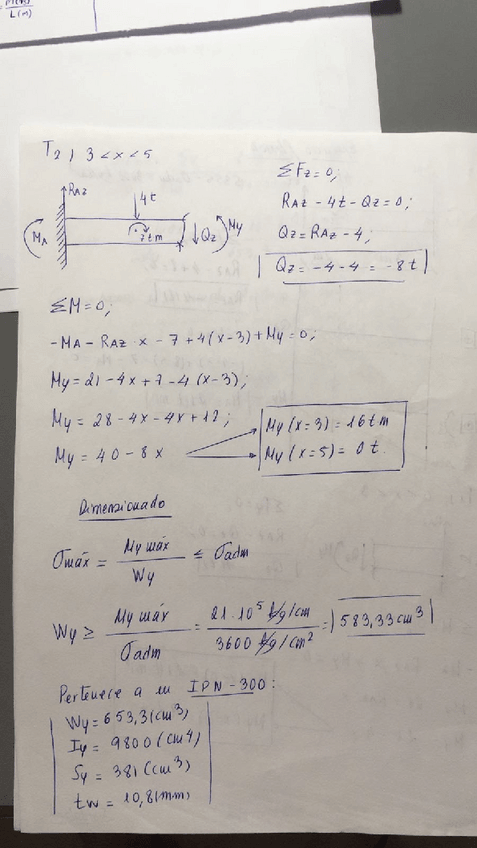 L(m)
T2) 3 < x < 5
RAZ
4t
MA
7tm
Qz
My
ΣFz=0;
RAZ - 4t - Qz = 0;
Qz = RAZ - 4;
Qz = -4 - 4 = -8t
ΣM=0;
-MA - RAZ·x - 7 + 4(x-3) + My = 0;
My = 21 - 4x + 7 - 4(x-3);
My = 28 - 4x - 4x + 12;
My = 40 - 8x
My (x=3) = 16tm
My (x=5) = 0t.
Dimensionado
σmáx = My máx / Wy ≤ σadm
Wy ≥ My máx / σadm = 21·10⁵ kg/cm / 3600 kg/cm² = 583,33 cm³
Pertenece a un IPN-300:
Wy = 653,3(cm³)
Iy = 9800 (cm4)
Sy = 381 (cm³)
tw = 10,8(mm)